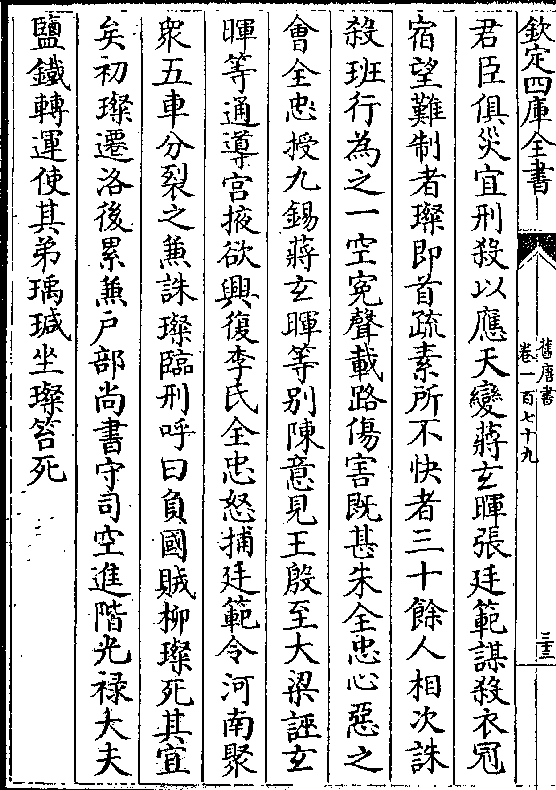 欽定四庫全書
舊唐書
卷一百七十九
三三
君臣俱災宜刑殺以應天變蔣玄暉張廷範謀殺衣冠
宿望難制者璨即首疏素所不快者三十餘人相次誅
殺班行為之一空冤聲載路傷害既甚朱全忠心惡之
會全忠授九錫蔣玄暉等別陳意見王殷至大梁誣玄
暉等通導宮掖欲興復李氏全忠怒捕廷範令河南聚
衆五車分裂之兼誅璨臨刑呼曰負國賊柳璨死其宜
矣初璨遷洛後累兼戶部尚書守司空進階光祿大夫
鹽鐵轉運使其弟瑀瑊坐璨笞死